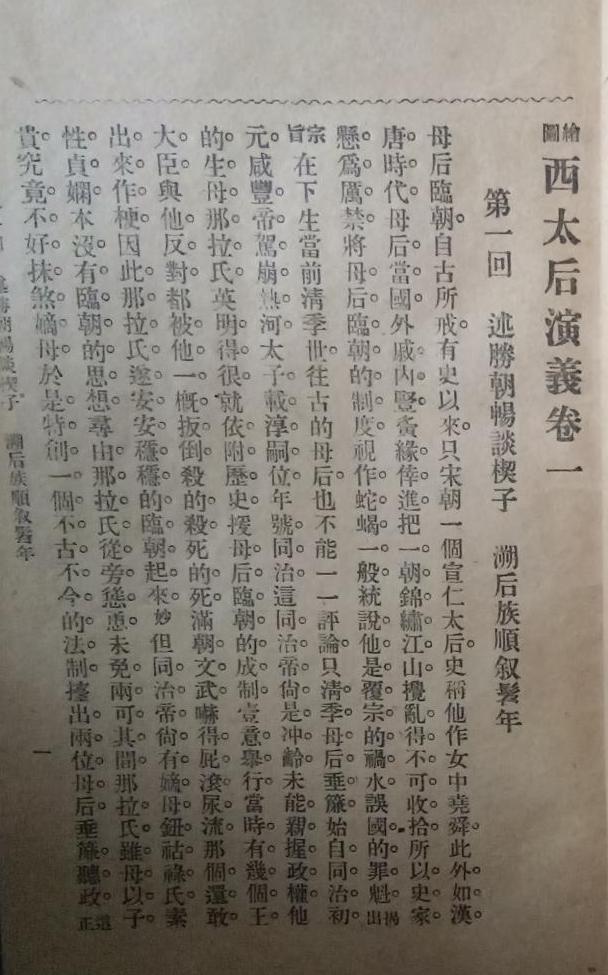 繪圖西太后演義卷一
第一回　述勝朝暢談楔子　溯后族順叙髫年
母后臨朝。自古所戒。有史以來。只宋朝一個宣仁太后。史稱他作女中堯舜。此外如漢。
唐時代。母后當國。外戚內豎。夤緣倖進。把一朝錦繡江山。攪亂得不可收拾。所以史家
懸爲厲禁。將母后臨朝的制度。視作蛇蝎一般。統說他是覆宗的禍水。誤國的罪魁。揭出
宗旨在下生當前清季世。往古的母后。也不能一一評論。只淸季母后垂簾。始自同治初
元。咸豐帝駕崩熱河。太子載淳嗣位。年號同治。這同治帝尙是冲齡。未能親握政權。他
的生母那拉氏。英明得很。就依附歷史。援母后臨朝的成制。壹意舉行。當時有幾個王
大臣。與他反對。都被他一概扳倒。殺的殺。死的死。滿朝文武。嚇得屁滾尿流。那個還敢
出來作梗。因此那拉氏遂安安穩穩的臨朝起來。妙但同治帝尙有嫡母鈕祜祿氏。素
性貞嫻。本沒有臨朝的思想。尋由那拉氏從旁慫恿。未免兩可其間。那拉氏雖母以子
貴。究竟不好抹煞嫡母。於是特創一個不古不今的法制。擡出兩位母后。垂簾聽政。這正
溯后族順叙髫年
一